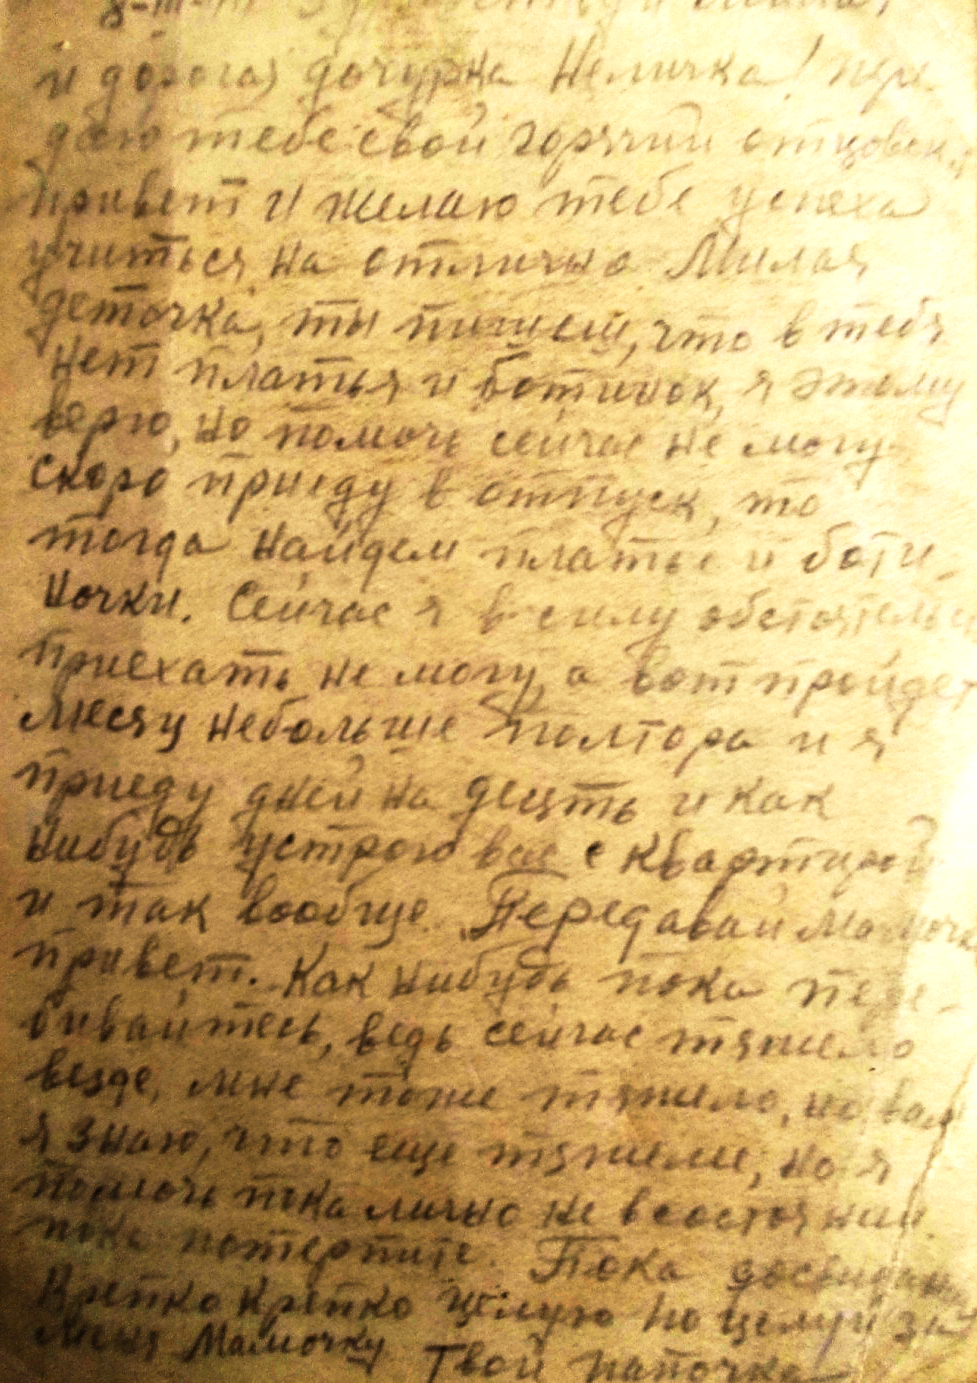 Здравствуй милая
и дорогая дочурка Неличка! Пере
даю тебе свой горячий отцовск
привет и желаю тебе успеха
учиться на отлично. Милая
деточка, ты пишеш, что в тебя
нет платья и ботинок, я этому
верю, но помочь сейчас не могу
скоро приеду в отпуск, то
тогда найдем платье и боти-
ночки. Сейчас я в силу обстоятельс
приехать не могу, а вот пройдет
месяц небольше полтора и я
приеду дней на десять и как
нибудь устрою вас с квартирой
и так вообще. Передавай мамочке
привет. Как нибудь пока пере-
бивайтесь, ведь сейчас тяжело
везде, мне тоже тяжело, но вам
я знаю, что еще тяжелее, но я
помочь пока лично не в состоянии
пока потерпите. Пока досвидан
Крепко крепко целую поцелуй за
меня Мамочку Твой папочка